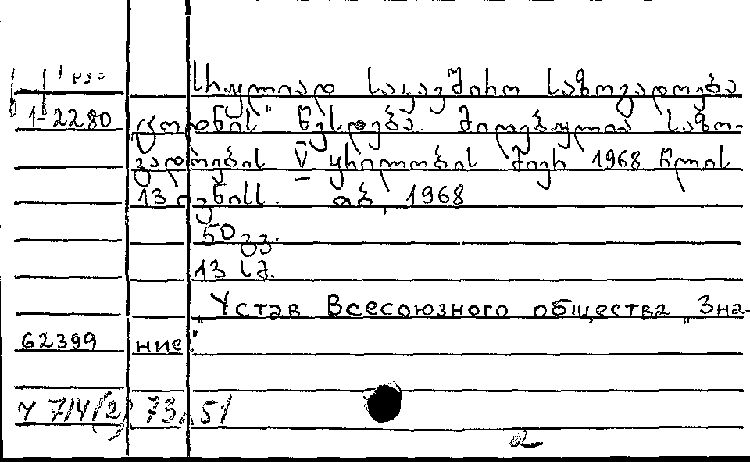 სრულიად საკავშირო საზოგადოება
1-2280 ცოდნის" წესდება. მიღებულია საზო-
გადოების V ყრილობის მიერ 1968 წლის
13 ივნისს. თბ, 1968
50 გვ.
13 სმ.
"Устав Всесоюзного общества "Зна-
62399 ние".
73.51